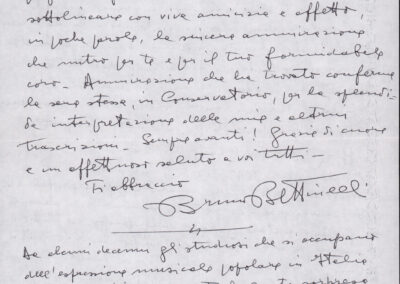 sottolineare con viva amicizia e affetto,
in poche parole, la sincera ammirazione
che nutro per te e per il tuo formidabile
coro. Ammirazione che ha trovato conferma
la sera stessa, in Conservatorio, per la splendi-
da interpretazione delle mie e altrui
trascrizioni. Sempre avanti! Grazie di cuore
e un affettuoso saluto a voi tutti –
Ti abbraccio
Bruno Bettinelli
Da alcuni decenni gli studiosi che si occupano
dell'espressione musicale popolare in Italia
sorpreso